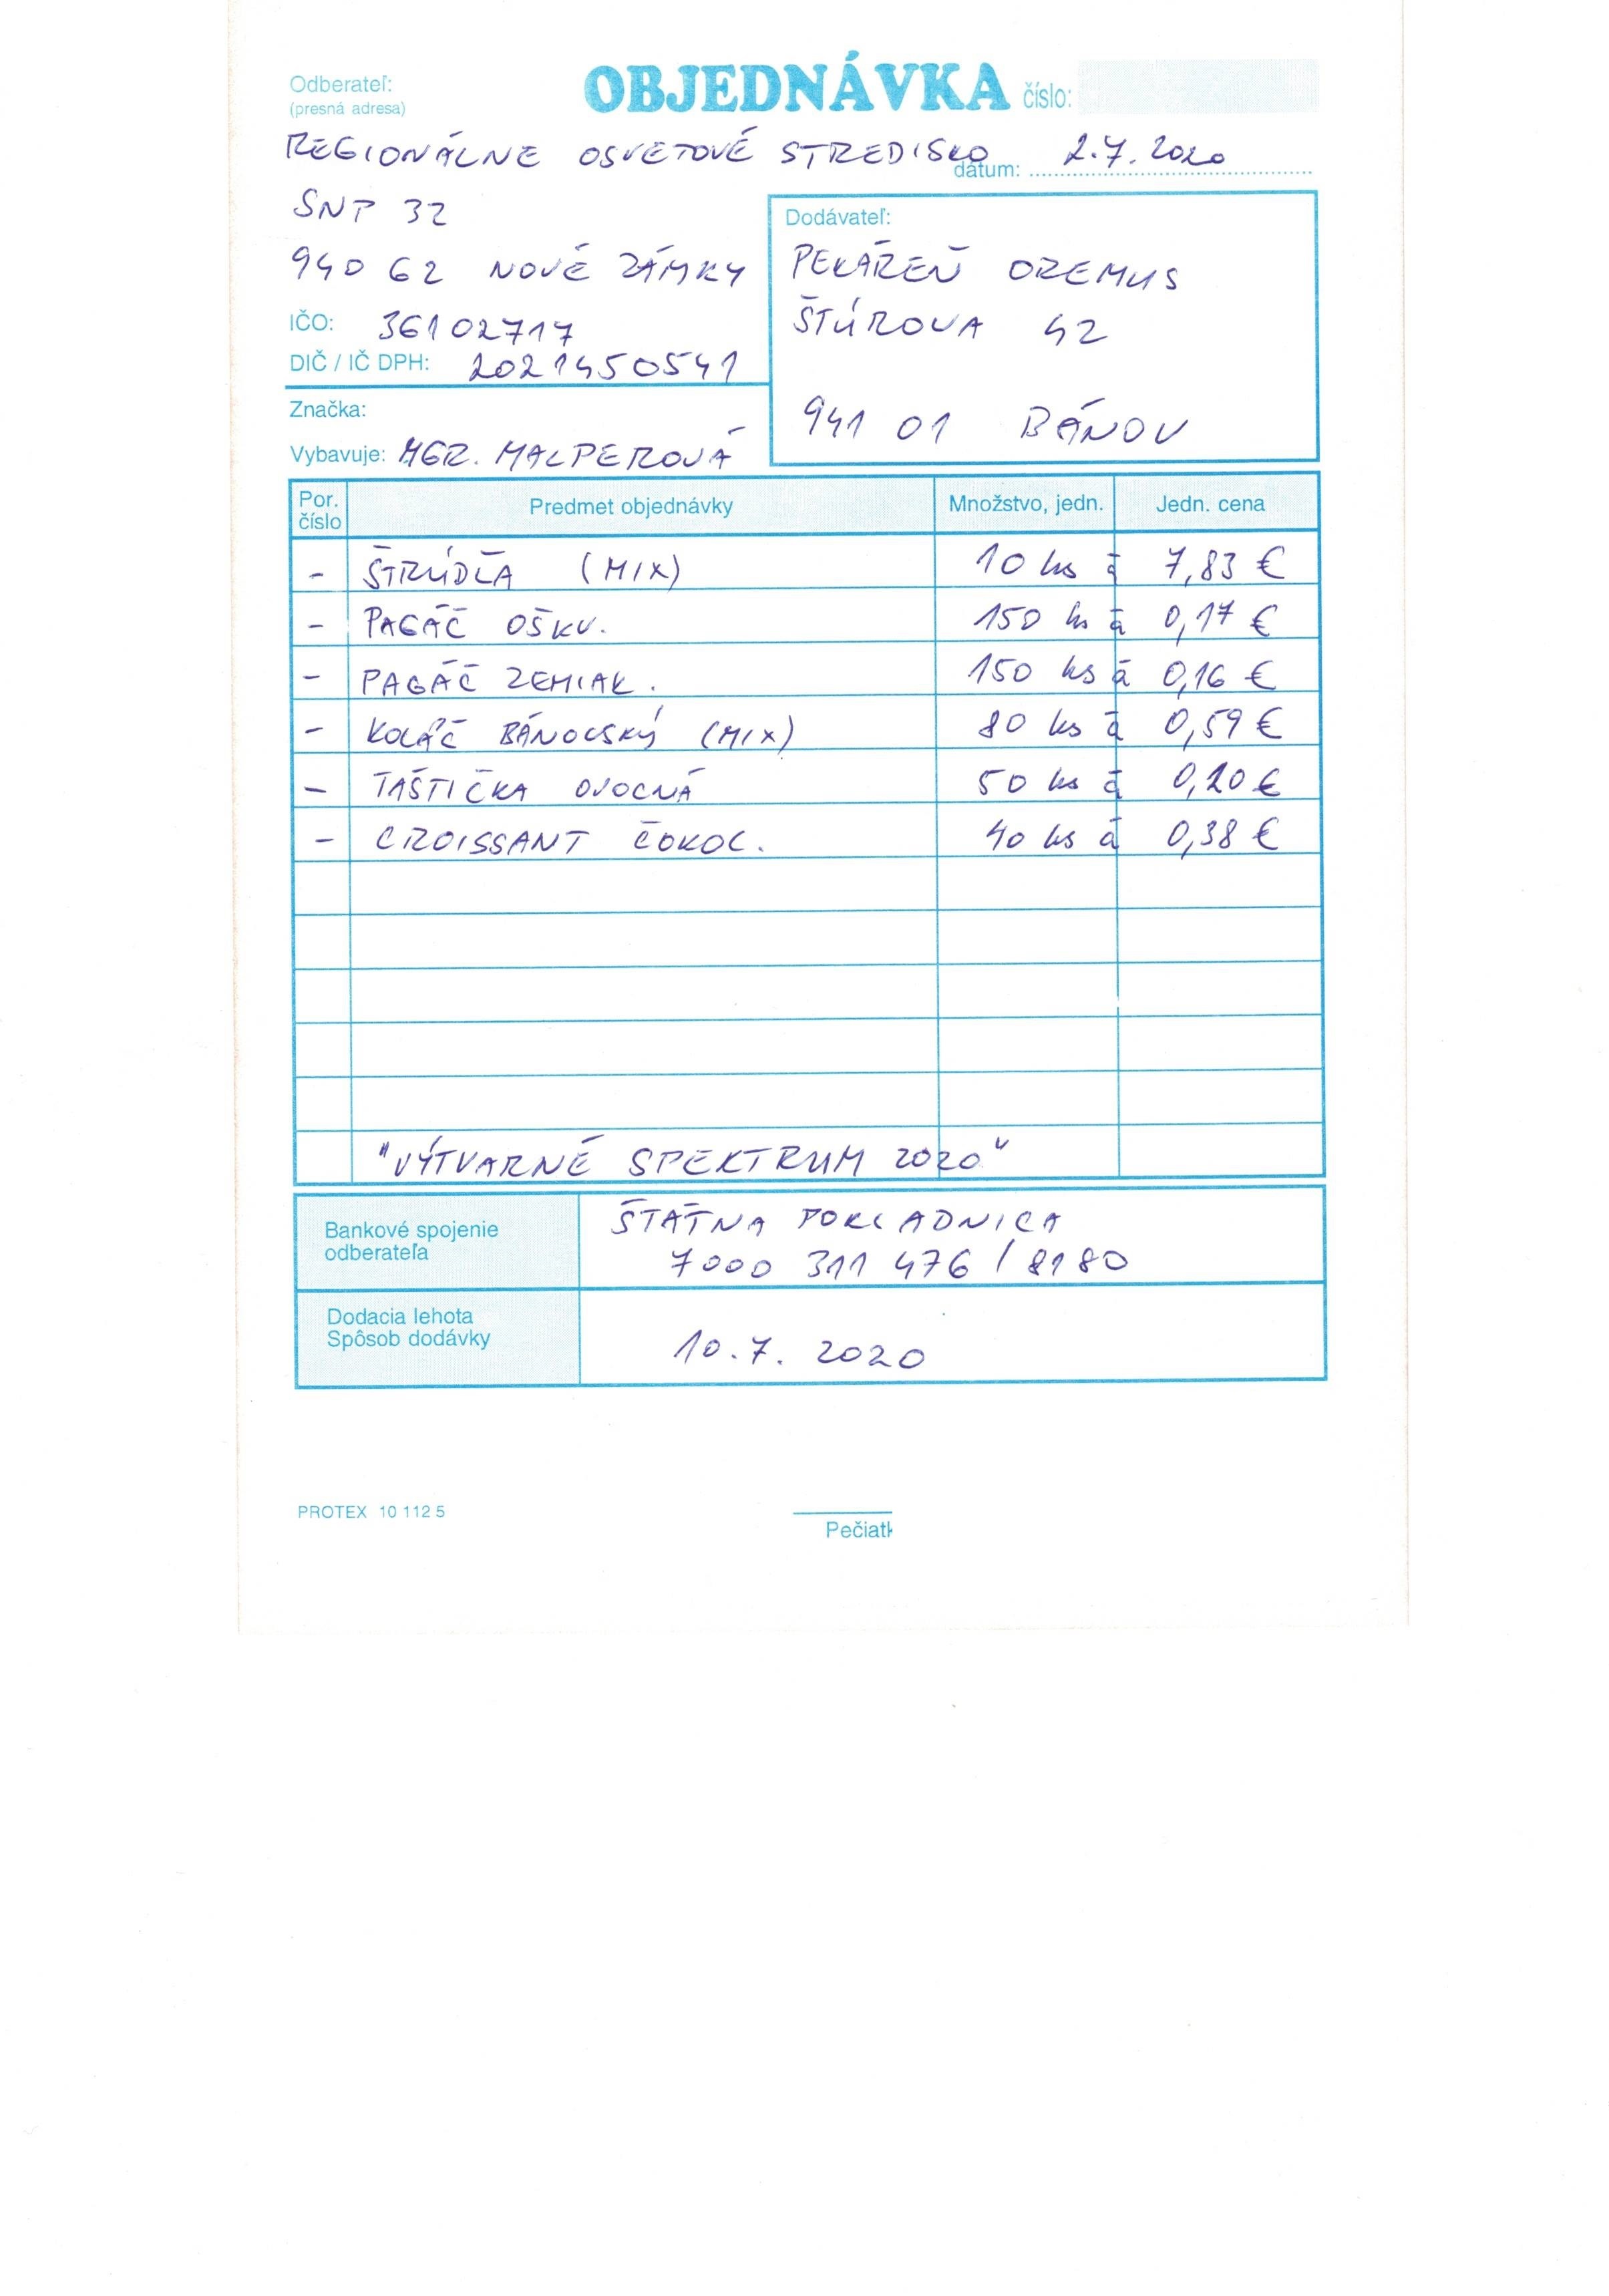 Odberateľ:
(presná adresa)
OBJEDNÁVKA číslo:
REGIONÁLNE OSVETOVÉ STREDISKO
dátum: 2.7.2020
SNP 32
940 62 NOVÉ ZÁMKY
IČO: 36102717
DIČ / IČ DPH: 2021450541
Značka:
Vybavuje: MGR. MALPEROVÁ
Dodávateľ:
PEKÁREŇ OREMUS
ŠTÚROVA 42
941 01 BÁNOV
Por. číslo Predmet objednávky Množstvo, jedn. Jedn. cena
- ŠTRÚDĽA (MIX) 10 ks á 7,83 €
- PAGÁČ OŠKV. 150 ks á 0,17 €
- PAGÁČ ZEMIAK. 150 ks á 0,16 €
- KOLÁČ BÁNOVSKÝ (MIX) 80 ks á 0,59 €
- TAŠTIČKA OVOCNÁ 50 ks á 0,20 €
- CROISSANT ČOKOL. 40 ks á 0,38 €
"VÝTVARNÉ SPEKTRUM 2020"
Bankové spojenie
odberateľa
ŠTÁTNA POKLADNICA
7000 311 476 / 8180
Dodacia lehota
Spôsob dodávky
10.7. 2020
PROTEX 10 112 5
Pečiatk